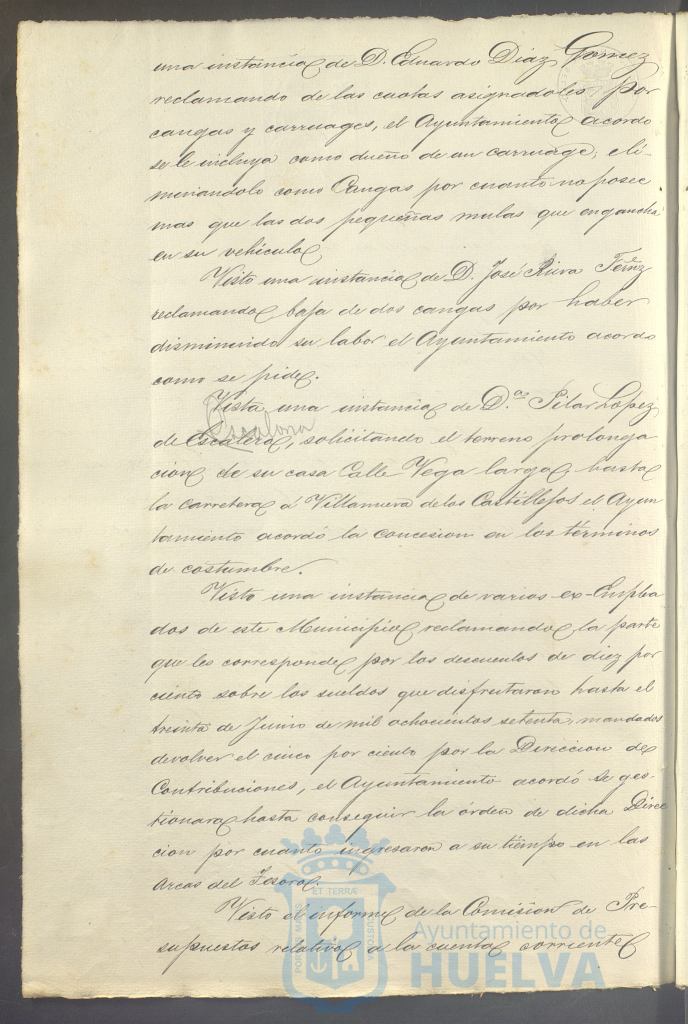 una instancia de D. Eduardo Diaz Gomez
reclamando de las cuotas asignadoles por
cangas y carruages, el Ayuntamiento acordo
se le incluya como dueño de un carruage, eli-
minandolo como Cangas por cuanto no posee
mas que las dos pequeñas mulas que engancha
en su vehiculo
Visto una instancia de D. José Riera Fernz
reclamando baja de dos cangas por haber
disminuido su labor el Ayuntamiento acordo
como se pide.
Vista una instancia de D.ª Pilar Lopez
Escalona
de Escalera, solicitando el terreno prolonga
cion de su casa Calle Vega larga, hasta
la carretera á Villanueva de los Castillejos el Ayun
tamiento acordó la concesion en los términos
de costumbre.
Visto una instancia de varios ex-Emplea
dos de este Municipio reclamando la parte
que les corresponde por los descuentos de diez por
ciento sobre los sueldos que disfrutaron hasta el
treinta de Junio de mil ochocientos setenta, mandados
devolver el cinco por ciento por la Direccion de
Contribuciones, el Ayuntamiento acordó se ges-
tionara hasta conseguir la órden de dicha Direc
cion por cuanto ingresaron a su tiempo en las
arcas del Tesoro.
Visto el informe de la Comision de Pre-
supuestos relativo a la cuenta corriente
PORTUS MARIS ET TERRÆ CUSTODIA
Ayuntamiento de
HUELVA